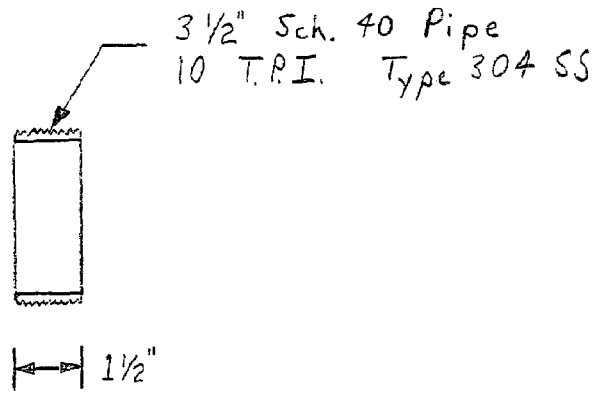 3 1/2" Sch. 40 Pipe
10 T.P.I. Type 304 SS
1 1/2"